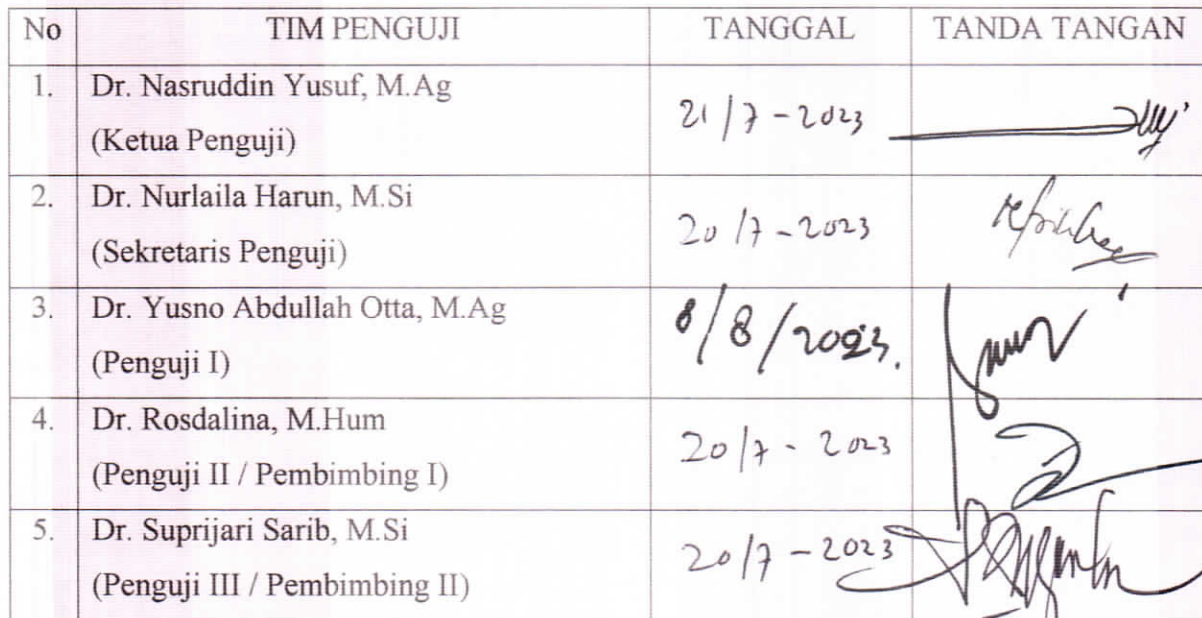 No TIM PENGUJI TANGGAL TANDA TANGAN
1. Dr. Nasruddin Yusuf, M.Ag
(Ketua Penguji)
21/7-2023
2. Dr. Nurlaila Harun, M.Si
(Sekretaris Penguji)
20/7-2023
3. Dr. Yusno Abdullah Otta, M.Ag
(Penguji I)
8/8/2023.
4. Dr. Rosdalina, M.Hum
(Penguji II / Pembimbing I)
20/7-2023
5. Dr. Suprijari Sarib, M.Si
(Penguji III / Pembimbing II)
20/7-2023